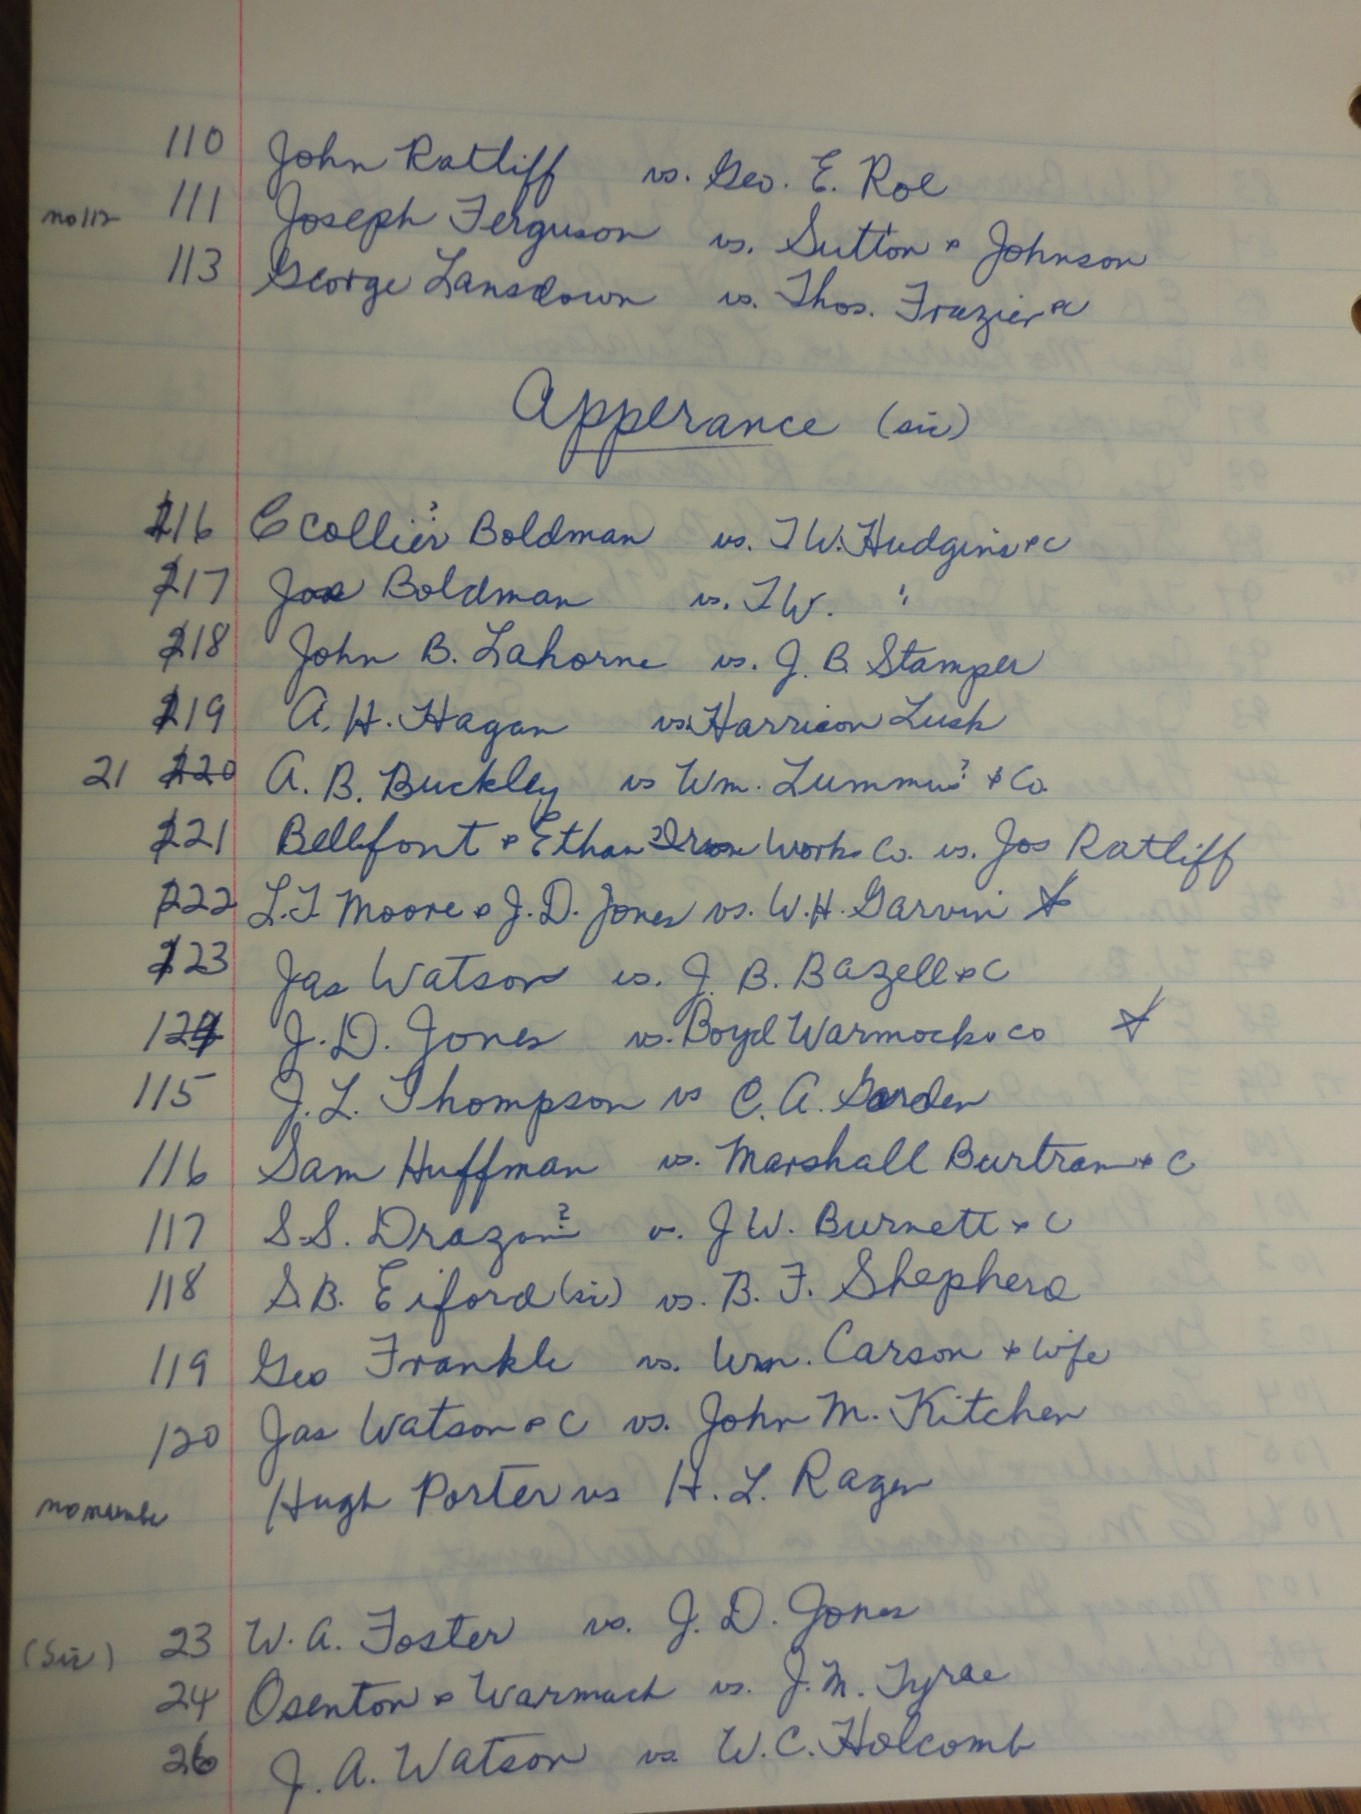 110 John Ratliff vs. Geo. E. Roe
no 112 111 Joseph Ferguson vs. Sutton & Johnson
113 George Lansdown vs. Thos. Frazier &c
Apperance (sic)
116 E Collier? Boldman vs. T W. Hudgins &c
117 Boldman vs. T W. "
118 John B. Lahorne vs. J. B. Stamper
119 A. H. Hagan vs. Harrison Lush
21 220 A. B. Buckley vs Wm. Lummus? & Co.
121 Bellfont & Ethan? Iron Works Co. vs. Jos Ratliff
122 L. T. Moore & J. D. Jones vs. W. H. Garvin
123 Jas Watson vs. J. B. Bazell &c
124 J. D. Jones vs. Boyd Warmock & co
115 J. L. Thompson vs C. A. Garden
116 Sam Huffman vs. Marshall Burtram & C
117 S. S. Drazon? v. J W. Burnett & C
118 S. B. Eiford (sic) vs. B. F. Shepherd
119 Geo Frankle vs. Wm. Carson & wife
120 Jas Watson & C vs. John M. Kitchen
no number Hugh Porter vs H. L. Rager
(Sic) 23 W. A. Foster vs. J. D. Jones
24 Osenton & Warmack vs. J. M. Tyree
26 J. A. Watson vs. W. C. Holcomb